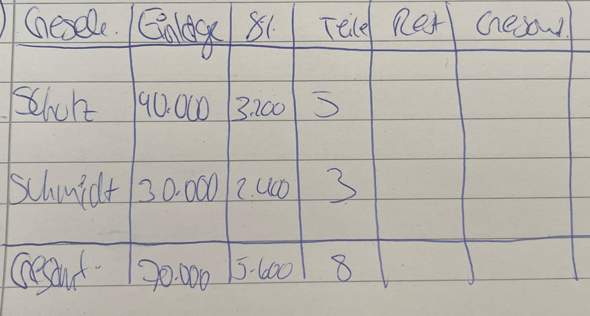 ) Gesell. Einlage 8%. Teile Rest Gesamt.
Schulz 40.000 3.200 5
Schmidt 30.000 2.400 3
Gesamt- 70.000 5.600 8